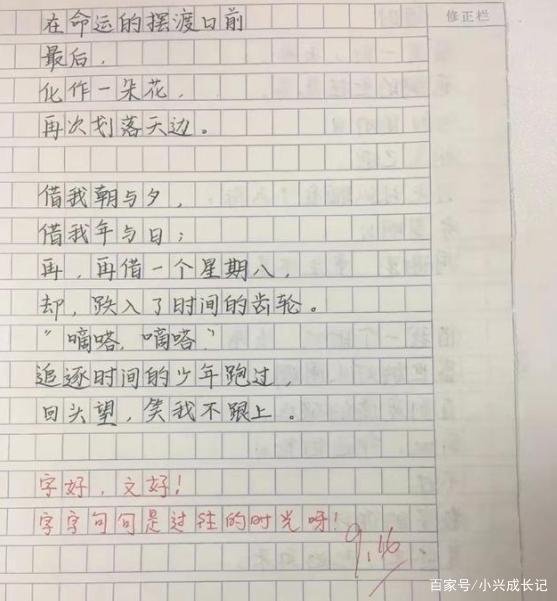 修正栏
在命运的摆渡口前
最后，
化作一朵花，
再次划落天边。
借我朝与夕，
借我年与日；
再，再借一个星期八，
却，跌入了时间的齿轮。
“嘀嗒，嘀嗒”
追逐时间的少年跑过，
回头望，笑我不跟上。
字好，文好！
字字句句是过往的时光呀！
9.16
百家号/小兴成长记